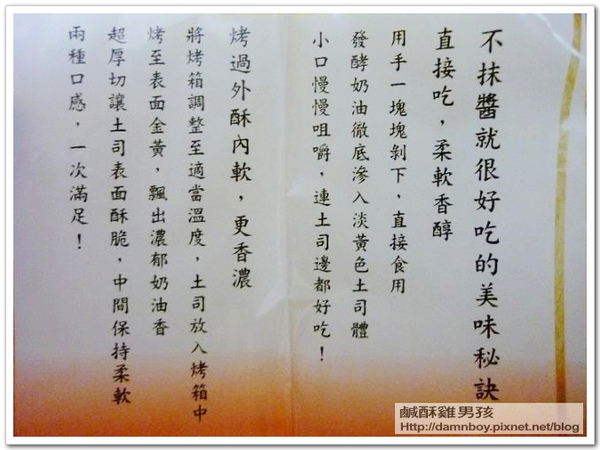 不抹醬就很好吃的美味秘訣
直接吃，柔軟香醇
用手一塊塊剝下，直接食用
發酵奶油徹底滲入淡黃色土司體
小口慢慢咀嚼，連土司邊都好吃！
烤過外酥內軟，更香濃
將烤箱調整至適當溫度，土司放入烤箱中
烤至表面金黃，飄出濃郁奶油香
超厚切讓土司表面酥脆，中間保持柔軟
兩種口感，一次滿足！
鹹酥雞男孩
Http://damnboy.pixnet.net/blog